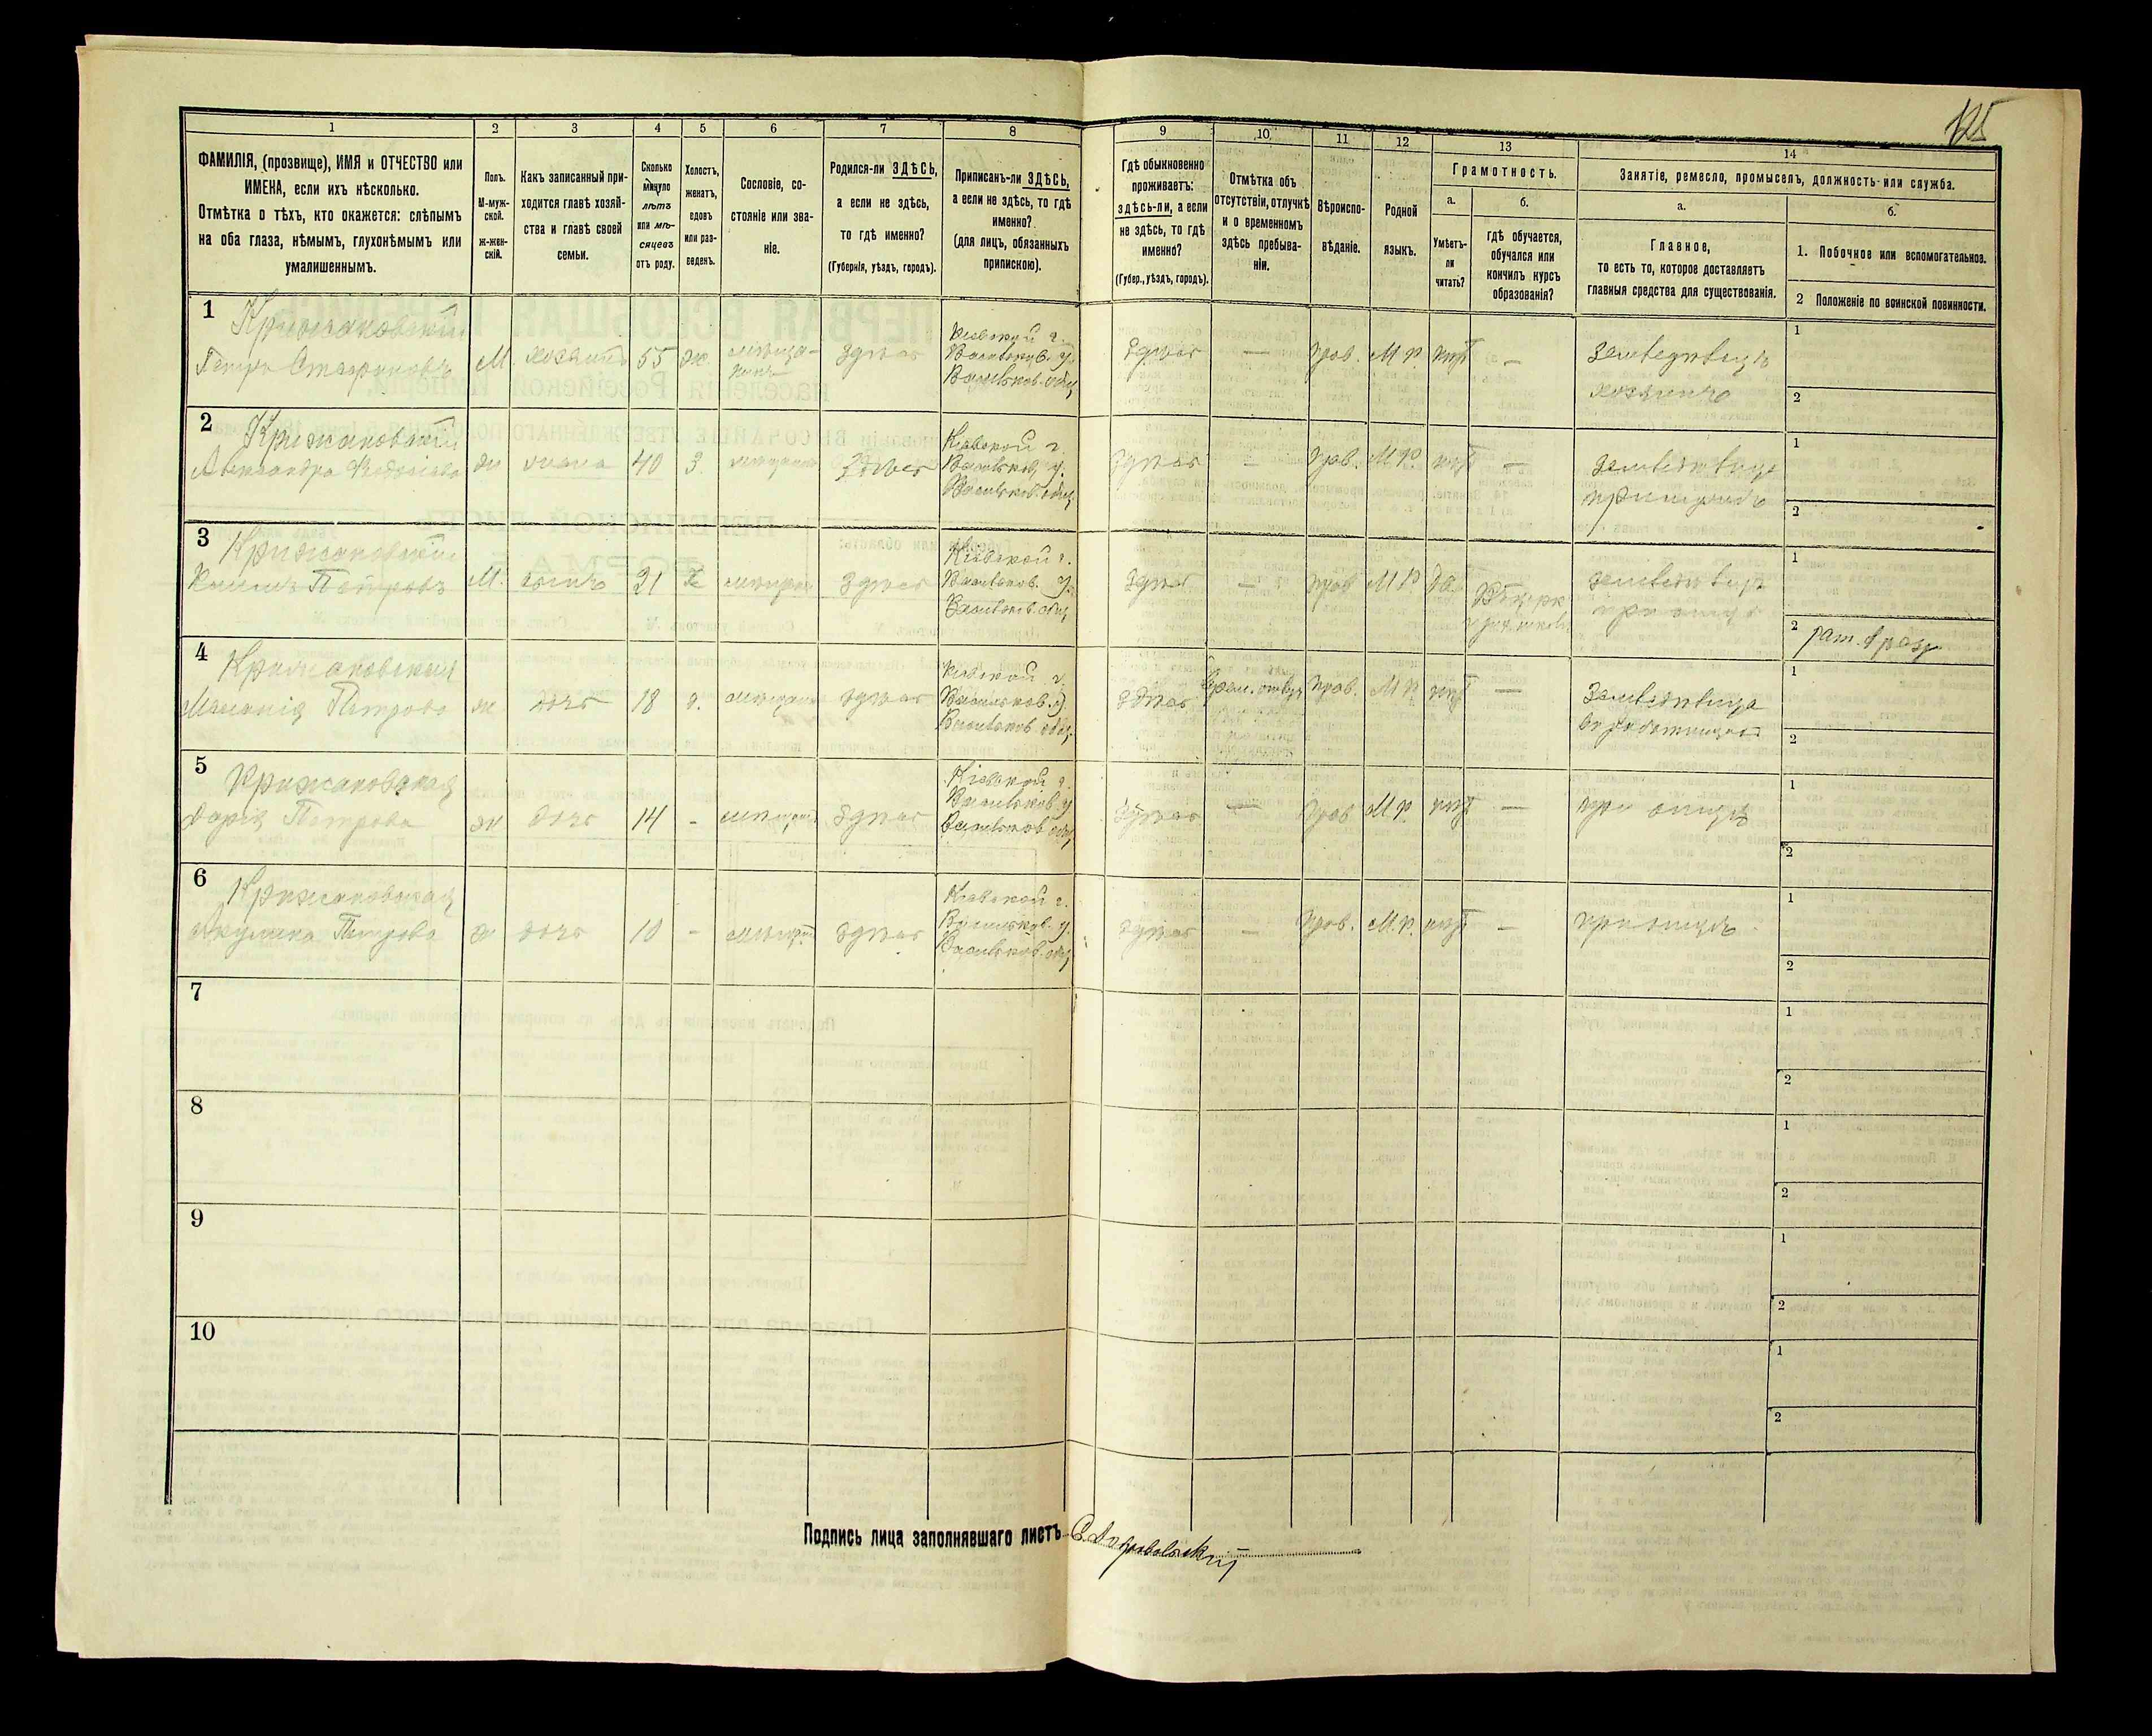 125
1 2 3 4 5 6 7 8 9 10 11 12 13 14
ФАМИЛІЯ, (прозвище), ИМЯ и ОТЧЕСТВО или
ИМЕНА, если ихъ нѣсколько.
Отмѣтка о тѣхъ, кто окажется: слѣпымъ
на оба глаза, нѣмымъ, глухонѣмымъ или
умалишеннымъ.
Полъ.
М-муж-
ской.
ж-жен-
скій.
Какъ записанный при-
ходится главѣ хозяй-
ства и главѣ своей
семьи.
Сколько
минуло
лѣтъ
или мѣ-
сяцевъ
отъ роду.
Холостъ,
женатъ,
вдовъ
или раз-
веденъ.
Сословіе, со-
стояніе или зва-
ніе.
Родился-ли ЗДѢСЬ,
а если не здѣсь,
то гдѣ именно?
(Губернія, уѣздъ, городъ).
Приписанъ-ли ЗДѢСЬ,
а если не здѣсь, то гдѣ
именно?
(для лицъ, обязанныхъ
припискою).
Гдѣ обыкновенно
проживаетъ:
здѣсь-ли, а если
не здѣсь, то гдѣ
именно?
(Губер., уѣздъ, городъ).
Отмѣтка объ
отсутствіи, отлучкѣ
и о временномъ
здѣсь пребыва-
ніи.
Вѣроиспо-
вѣданіе.
Родной
языкъ.
Грамотность.
а.
Умѣетъ-
ли
читать?
б.
гдѣ обучается,
обучался или
кончилъ курсъ
образованія?
Занятіе, ремесло, промыселъ, должность или служба.
а.
Главное,
то есть то, которое доставляетъ
главныя средства для существованія.
б.
1. Побочное или вспомогательное.
2 Положеніе по воинской повинности.
1 Крижаковскій
Петръ М. хозяинъ 55 ж. мѣща- здѣсь
Кіевской г.
Васильков. у.
Васильков. общ.
здѣсь — прав. М. р. нѣт —
хозяинъ
1
2
2 Крижаковскій
Александра жи жена 40 З. здѣсь
Кіевской г.
Васильков. у.
Васильков. общ.
здѣсь — прав. М. р. нѣт —
1
2
3 Крижаковскій
Петровъ М. сынъ 21 х здѣсь
Кіевской г.
Васильков. у.
Васильков. общ.
здѣсь — прав М. р. да.
при отцѣ
1
2 рат. 1 разр
4 Крижаковская
Петрова ж. дочь 18 здѣсь
Кіевской г.
Васильков. у.
Васильков общ.
здѣсь прав. М. р. нѣт —
1
2
5 Крижаковская
Дарія Петрова жи дочь 14 - здѣсь
Кіевской г.
Васильков. у
Васильков общ.
здѣсь — прав М. р. нѣт — при отцѣ
1
2
6 Крижаковская
Акулина Петрова ж дочь 10 - здѣсь
Кіевской г.
Васильков. у.
Васильков. общ
здѣсь — прав. М. р. нѣт — при отцѣ
1
2
7
1
2
8
1
2
9
1
2
10
1
2
Подпись лица заполнявшаго листъ